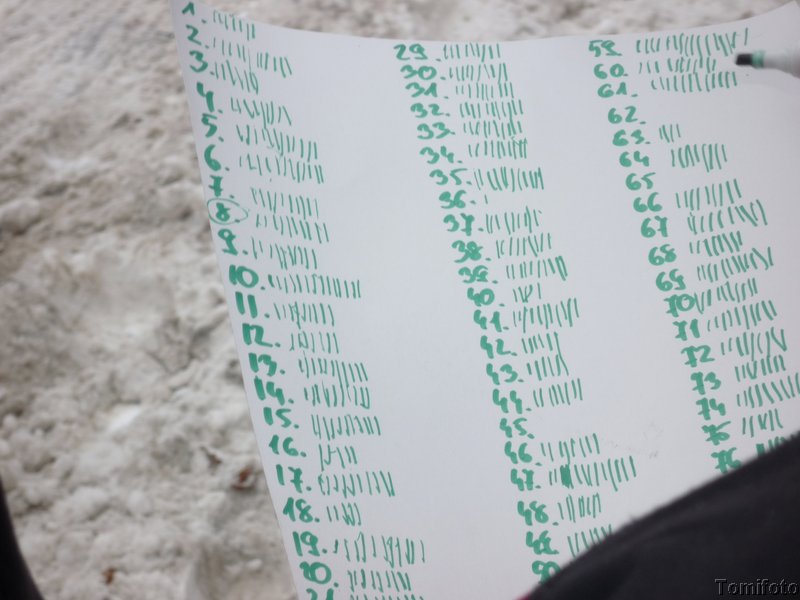 1.
2.
3.
4.
5.
6.
7.
8.
9.
10.
11.
12.
13.
14.
15.
16.
17.
18.
19.
20.
21
29.
30.
31.
32.
33.
34.
35.
36.
37.
38.
39.
40
41.
42.
43.
44.
45.
46.
47.
48.
49.
50
59.
60.
61.
62.
63.
64
65
66
67
68
69
70
71
72
73
74
75
76
Tomifoto